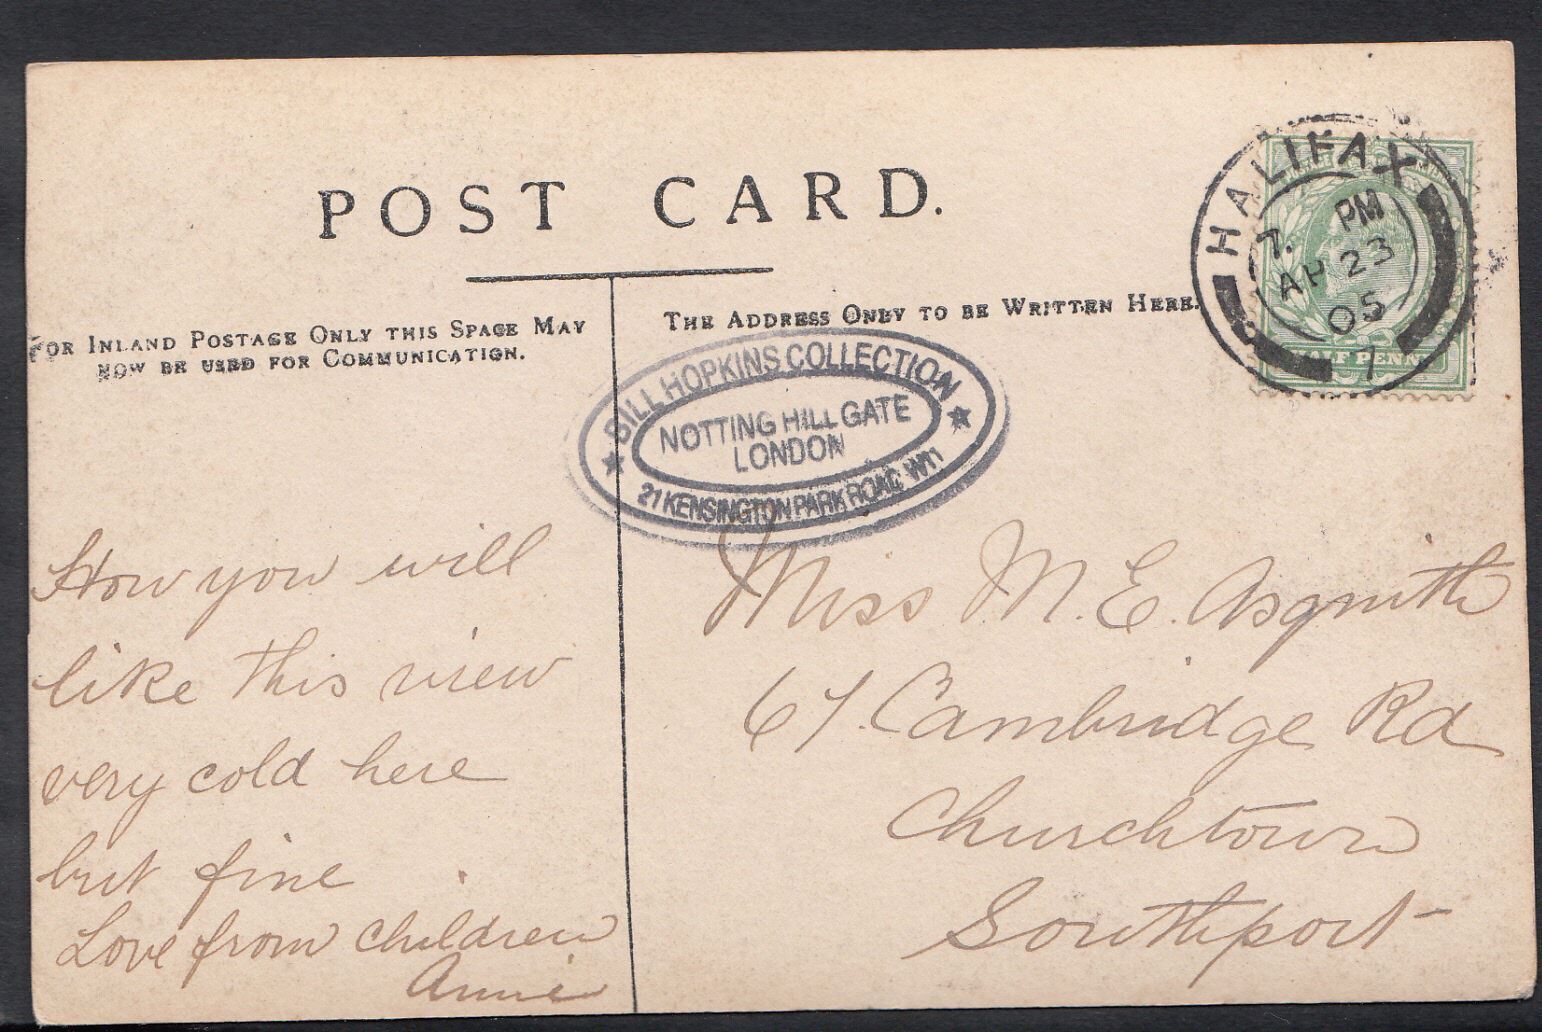 POST CARD.
FOR INLAND POSTAGE ONLY THIS SPACE MAY
NOW BE USED FOR COMMUNICATION.
THE ADDRESS ONLY TO BE WRITTEN HERE.
HALIFAX
7. PM
AP 23
05
1
HALF PENNY
BILL HOPKINS COLLECTION
NOTTING HILL GATE
LONDON
21 KENSINGTON PARK ROAD W11
How you will
like this view
very cold here
but fine
Love from children
Annie
Miss M. E. Asquith
67 Cambridge Rd
Churchtown
Southport